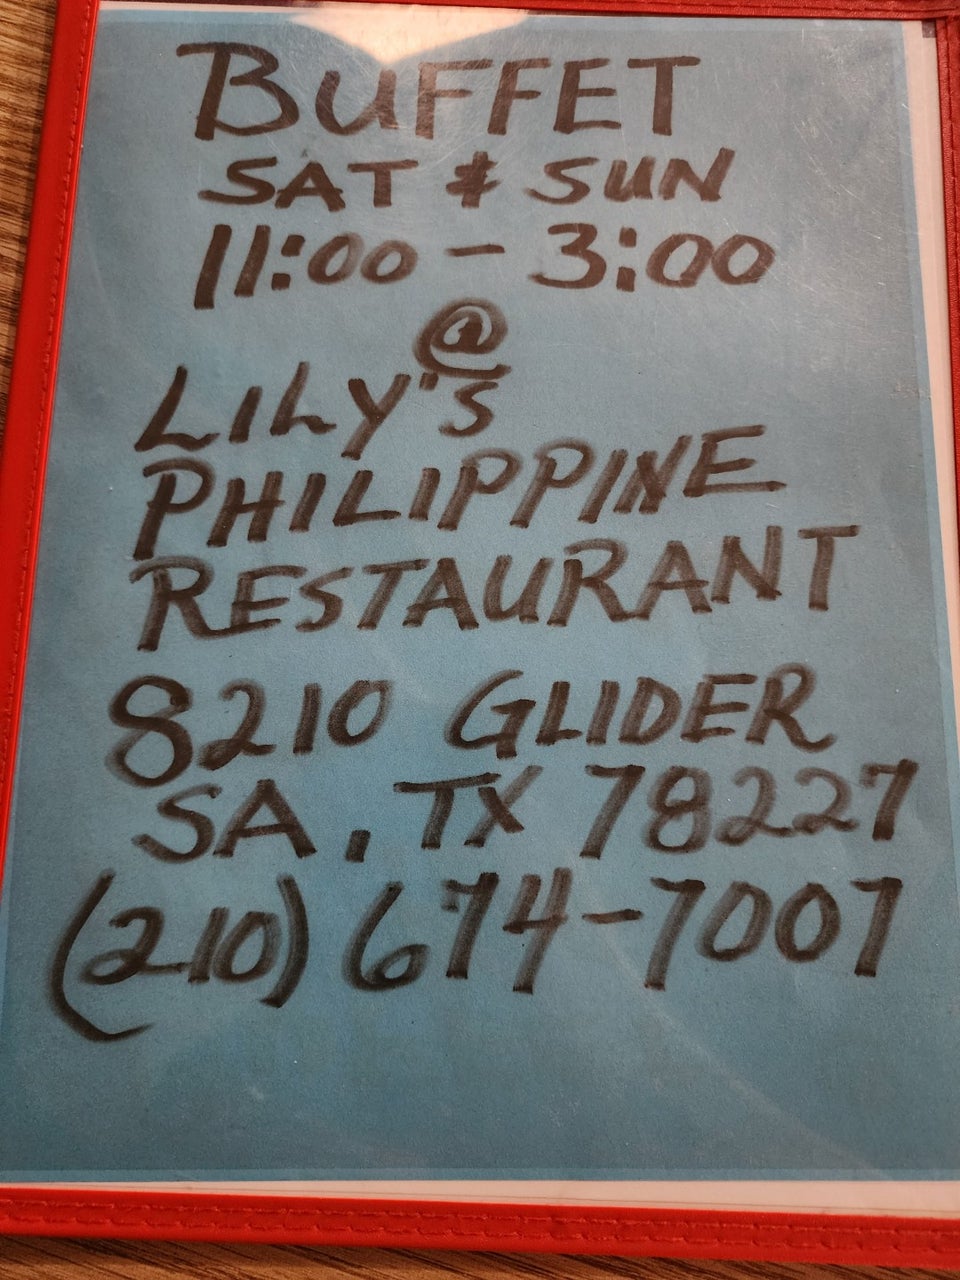 BUFFET
SAT & SUN
11:00 - 3:00
@
LILY'S
PHILIPPINE
RESTAURANT
8210 GLIDER
SA, TX 78227
(210) 674-7007